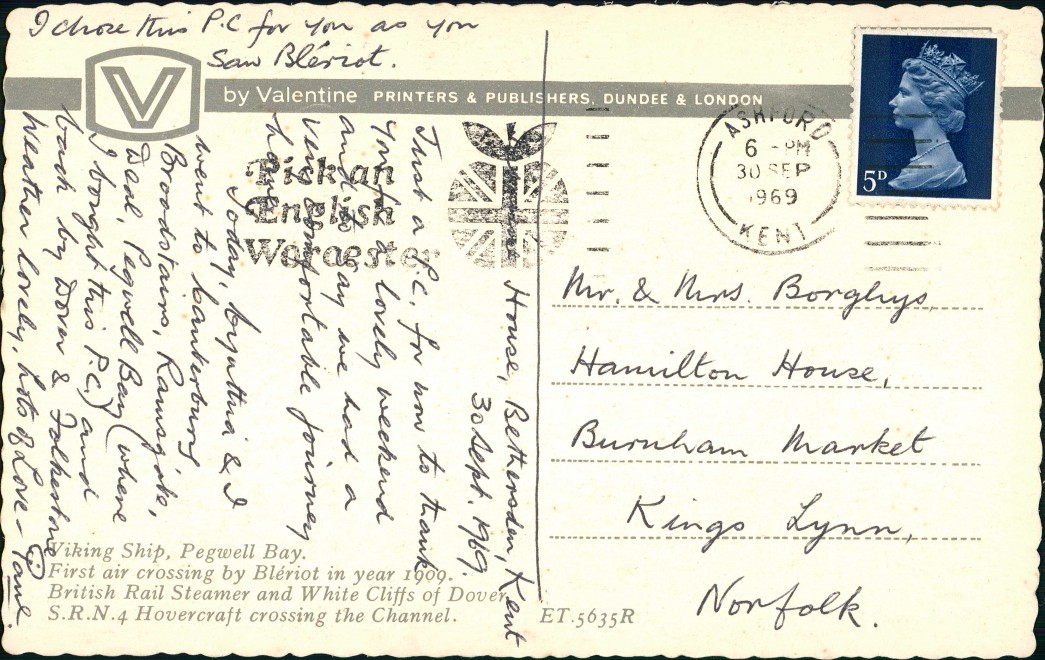 I chose this P.C for you as you
saw Blériot.
by Valentine PRINTERS & PUBLISHERS, DUNDEE & LONDON
V
ASHFORD
6 - PM
30 SEP
1969
KENT
5D
Pick an
English
Worcester
House, Bethersden, Kent
30 Sept. 1969.
Just a P.C, for now to thank
you lovely weekend
and say we had a
very comfortable journey
Today, & I
went to Canterbury
Broadstairs, Ramsgate,
Deal, Pegwell Bay (where
I bought this P.C.) and
back by Dover & Folkestone
Weather lovely, Lots of Love -
Mr. & Mrs. Borghys,
Hamilton House,
Burnham Market
Kings Lynn,
Norfolk.
Viking Ship, Pegwell Bay.
First air crossing by Blériot in year 1909.
British Rail Steamer and White Cliffs of Dover
S.R.N.4 Hovercraft crossing the Channel.
ET.5635R